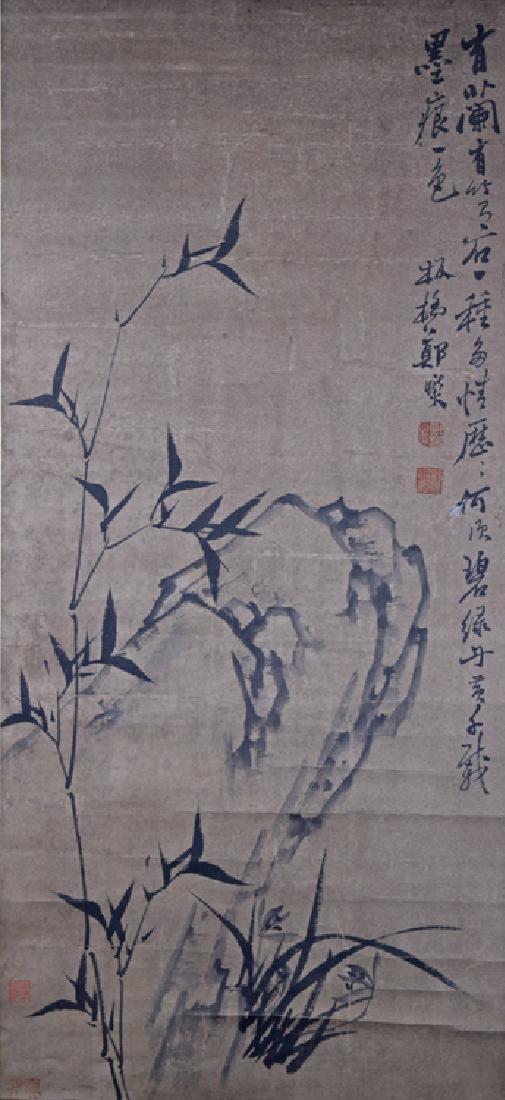 有蘭有竹有石一種多情歷：何須碧綠丹黃千載
墨痕一色
板橋鄭燮